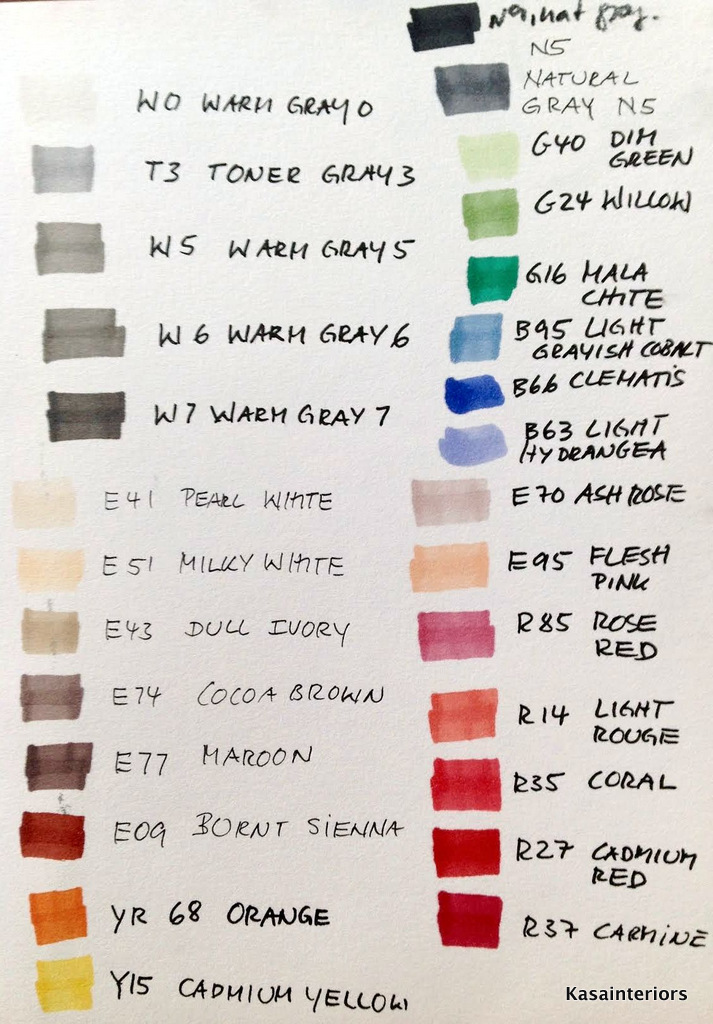 W0 WARM GRAY 0
T3 TONER GRAY 3
W5 WARM GRAY 5
W6 WARM GRAY 6
W7 WARM GRAY 7
E41 PEARL WHITE
E51 MILKY WHITE
E43 DULL IVORY
E74 COCOA BROWN
E77 MAROON
E09 BURNT SIENNA
YR 68 ORANGE
Y15 CADMIUM YELLOW
N5
NATURAL
GRAY N5
G40 DIM
GREEN
G24 WILLOW
G16 MALA
CHITE
B95 LIGHT
GRAYISH COBALT
B66 CLEMATIS
B63 LIGHT
HYDRANGEA
E70 ASH ROSE
E95 FLESH
PINK
R85 ROSE
RED
R14 LIGHT
ROUGE
R35 CORAL
R27 CADMIUM
RED
R37 CARMINE
Kasainteriors